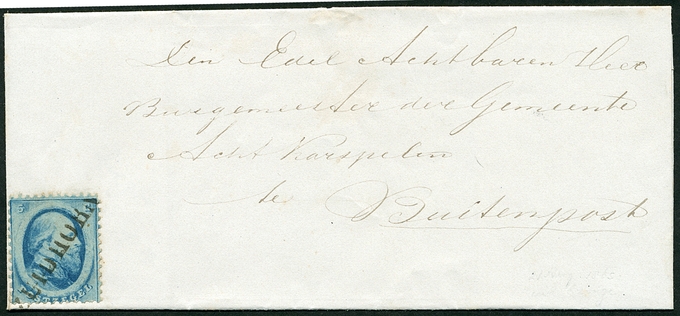 Den Edel Achtbaren Heer
Burgemeester der Gemeente
Acht Karspelen
te Buitenpost
5
POSTZEGEL